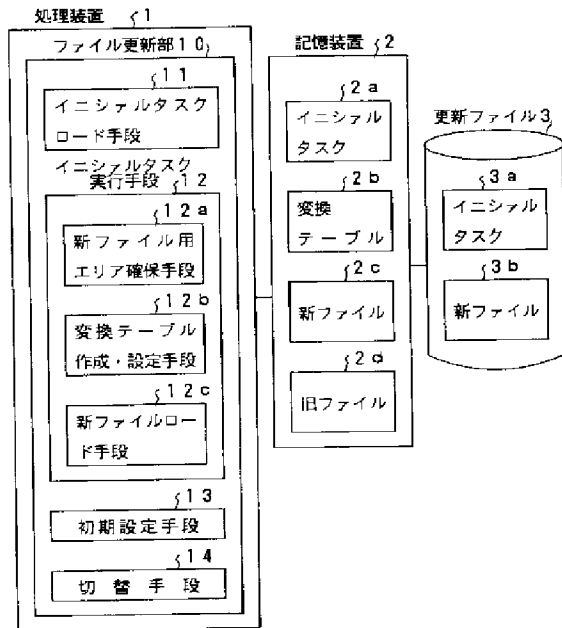 処理装置 1
ファイル更新部 10
11
イニシャルタスク
ロード手段
イニシャルタスク
実行手段 12
12a
新ファイル用
エリア確保手段
12b
変換テーブル
作成・設定手段
12c
新ファイルロー
ド手段
13
初期設定手段
14
切替手段
記憶装置 2
2a
イニシャル
タスク
2b
変換
テーブル
2c
新ファイル
2d
旧ファイル
更新ファイル 3
3a
イニシャル
タスク
3b
新ファイル